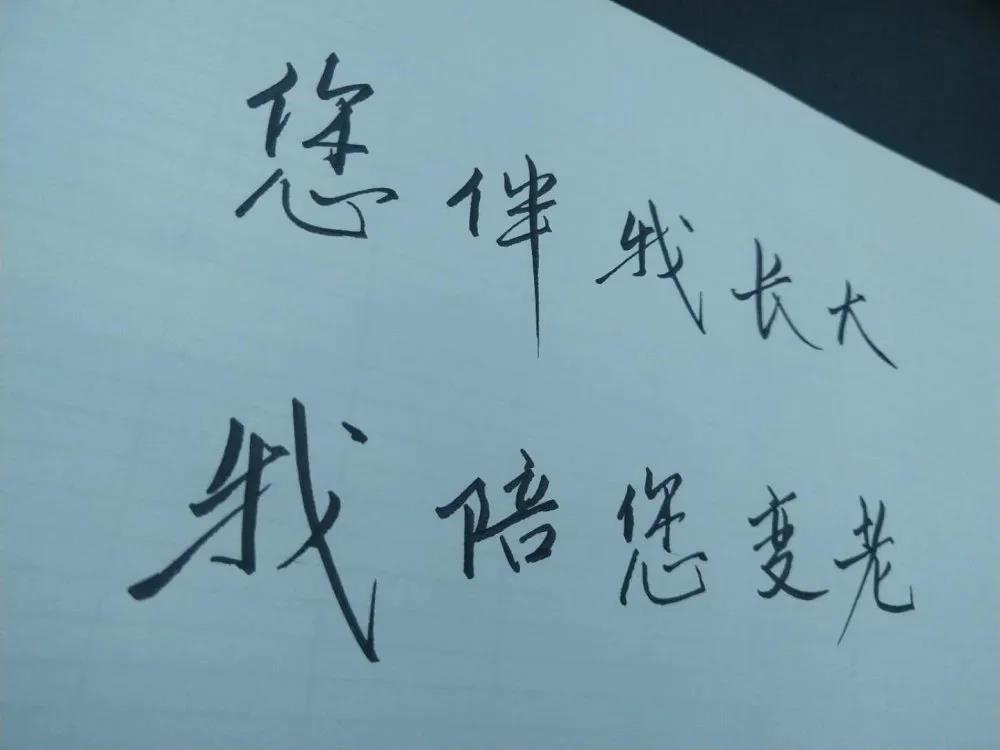 您伴我长大
我陪您变老